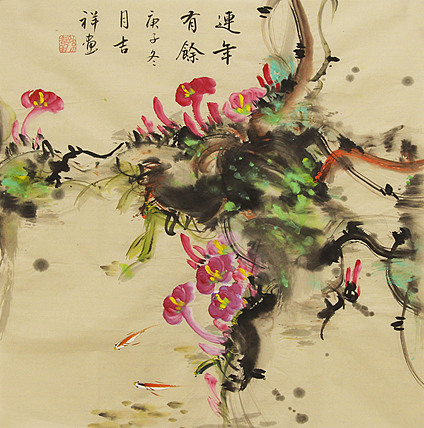 連年
有餘
庚子冬
月吉
祥畫